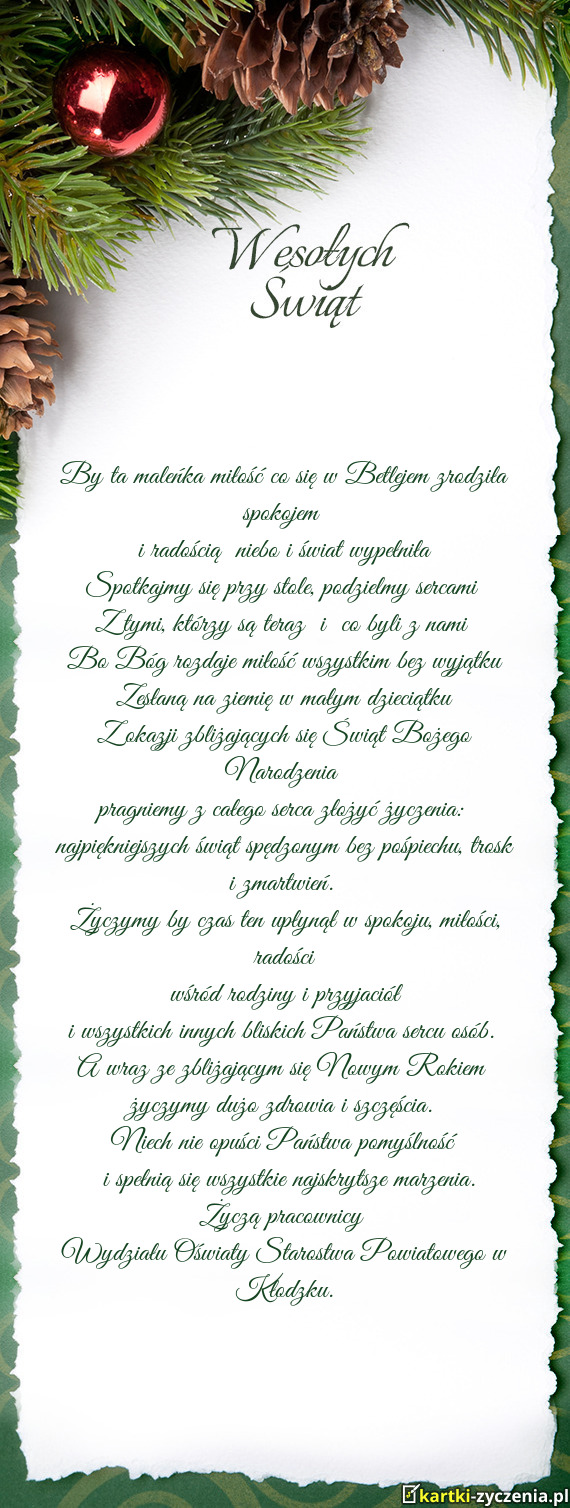 Wesołych
Świąt
By ta maleńka miłość co się w Betlejem zrodziła
spokojem
i radością niebo i świat wypełniła
Spotkajmy się przy stole, podzielmy sercami
Z tymi, którzy są teraz i co byli z nami
Bo Bóg rozdaje miłość wszystkim bez wyjątku
Zesłaną na ziemię w małym dzieciątku
Z okazji zbliżających się Świąt Bożego
Narodzenia
pragniemy z całego serca złożyć życzenia:
najpiękniejszych świąt spędzonym bez pośpiechu, trosk
i zmartwień.
Życzymy by czas ten upłynął w spokoju, miłości,
radości
wśród rodziny i przyjaciół
i wszystkich innych bliskich Państwa sercu osób.
A wraz ze zbliżającym się Nowym Rokiem
życzymy dużo zdrowia i szczęścia.
Niech nie opuści Państwa pomyślność
i spełnią się wszystkie najskrytsze marzenia.
Życzą pracownicy
Wydziału Oświaty Starostwa Powiatowego w
Kłodzku.
kartki-zyczenia.pl